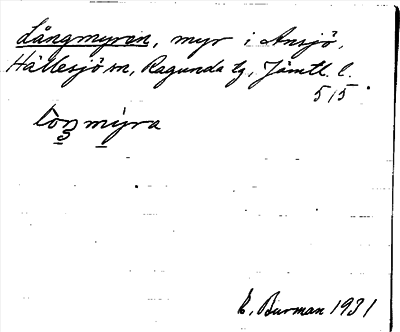 Långmyren, myr i Ansjö,
Hällesjö sn, Ragunda tg, Jämtl. l.
5/5.
E. Burman 1931